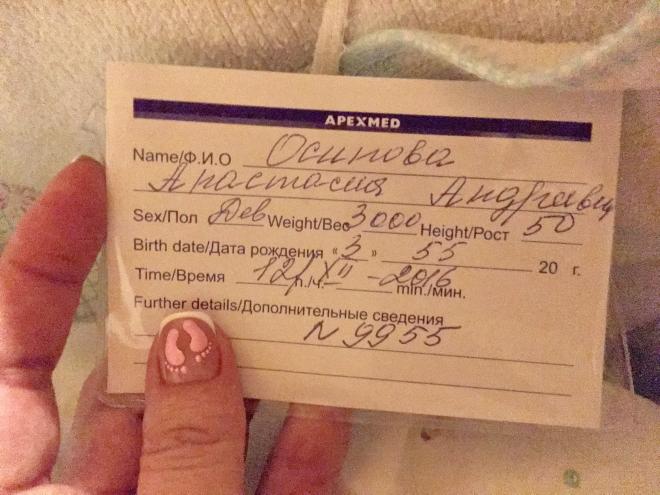 APEXMED
Name/Ф.И.О Осипова
Анастасия Андреевн
Sex/Пол Дев Weight/Вес 3000 Height/Рост 50
Birth date/Дата рождения « 3 » 55 20 г.
Time/Время 12 h./ч. XII - 2016 min./мин.
Further details/Дополнительные сведения
N 9955